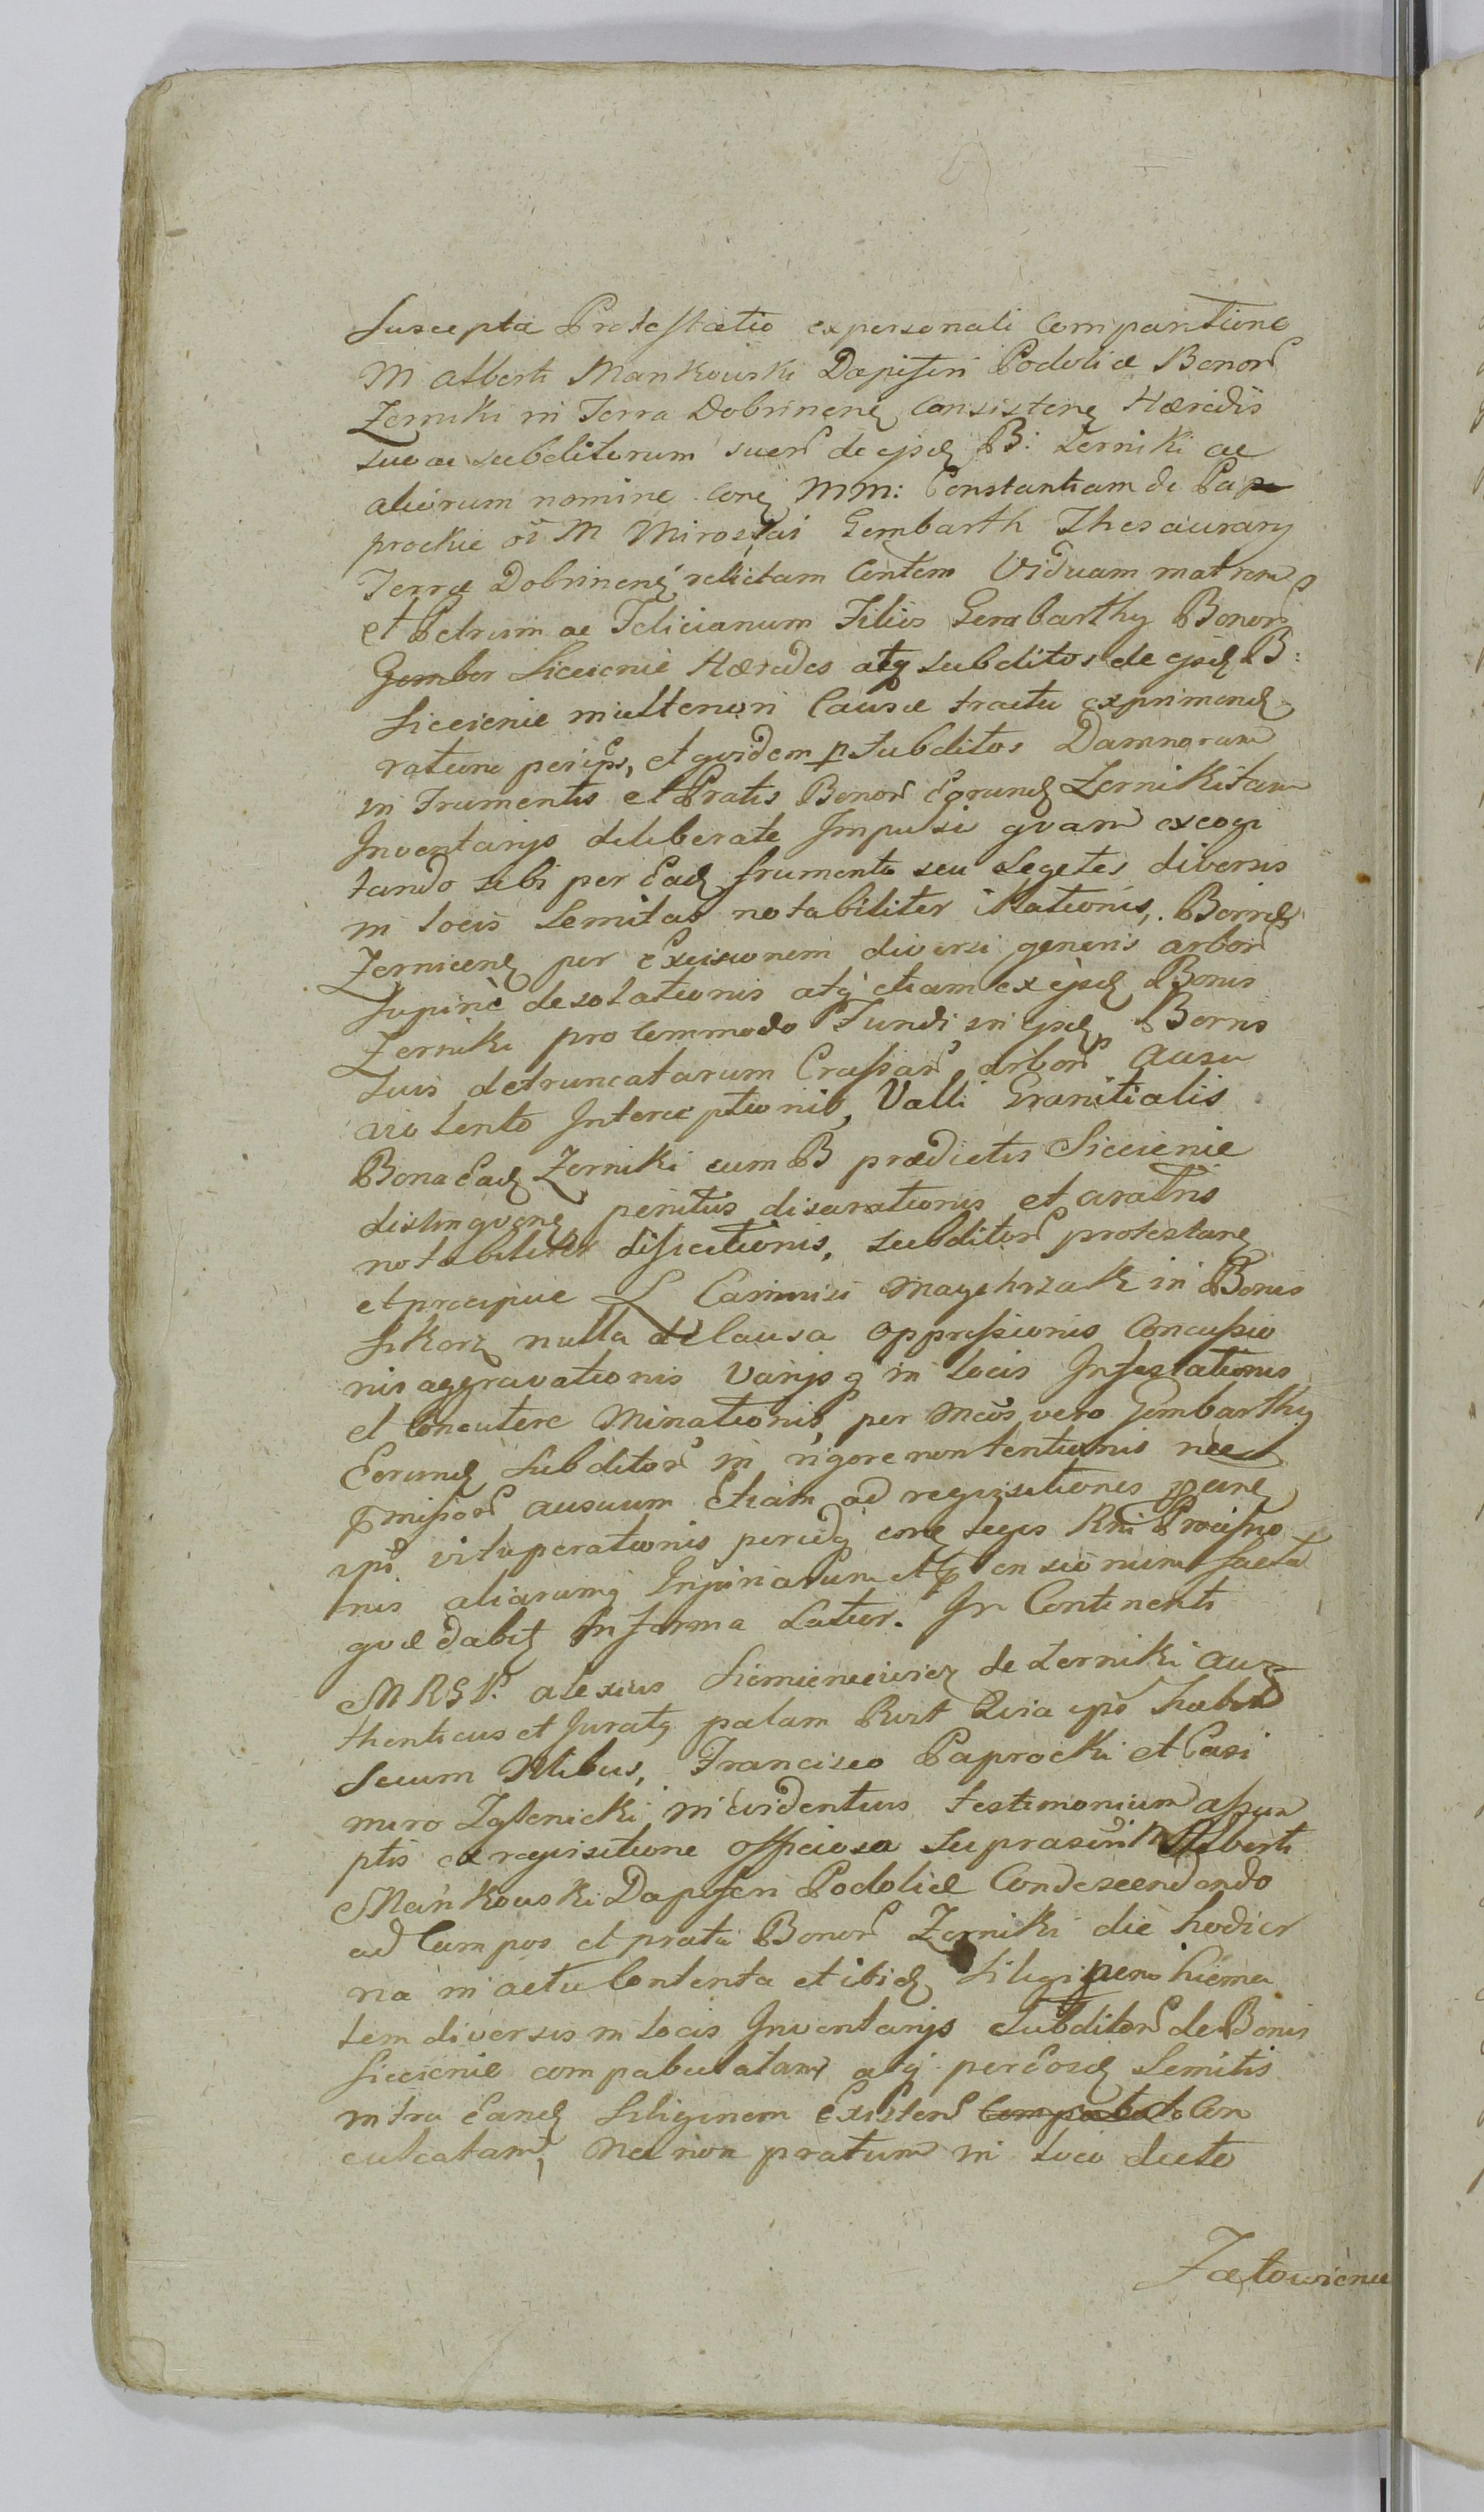 Suscepta Protestatio ex personali Comparitione
M Alberti Mankowski Dapiferi Podoliæ Bonor
Zerniki in Terra Dobrinen Consisten Hæredis
suo ac subditorum suor de ejsd B: Zerniki ac
aliorum nomine. Con MM: Constantiam de Pap
prockie M Miroslai Gembarth Thesaurary
Terræ Dobrinen relictam Contem Viduam matrem
et Petrum ac Felicianum Filios Gembarthy Bonor
Gember Siecienie Hæredes atq subditos de ejsd B:
Siecienie inultenori Causæ tractu exprimend
ratione per ips, et qvidem p subditos Damnorum
in Frumentis et Pratis Bonor Eorund Zernikitam
Inventarys deliberate Impulsi qvam excogi
tando sibi per Ead frumenta seu Segetes diversis
in locis Semitas notabiliter illationis, Bonis
Zernicen per Excisionem diversi generis arbor
Supinè desolationis atq etiam ex ejsd Bonis
Zerniki pro Commodo Fundi in ejsd Bonis
suis detruncatarum Crassar arbor Ausu
violento Interceptionis, Valli Granitialis
Bona Ead Zerniki cum B prædictis Siecienie
distingven penitus disarationis et aratris
notabiliter disjectionis, subditor protestan
et præcipue L Casimiri Maychrzak in Bonis
Sikorz nulla de Causa oppressionis Concussio
nis aggravationis Varysq in locis Infestationis
et Concutere Minationis, per Mcos vero Gembarthy
Eorund Subditor in rigore non tentionis nec
pmissor ausuum Etiam ad reqvisitiones
ips vituperationis con legis Rni
nis aliarumq Injuriarum facta
qvæ dabit In forma Latior. In Continenti
MRGP. Alexius Siemieniewicz de Zerniki Au
thenticus et Jurat palam Rvit Qvia ips habit
Secum Nlibus, Francisco Paprocki et Casi
miro Zglenicki in evidentius testimonium assum
ptis ex reqvisitione officiosa Suprascri M Alberti
Mankowski Dapiferi Podoliæ Condescendendo
ad Campos et prata Bonor Zerniki die hodier
na in actu Contenta et ibid Siligi hiema
lem diversis in locis Inventarys Subditor de Bonis
Siecienie compabulatam atq per Eosd Semitis
intra Eand Siliginem Existen Con
culcatam, nec non pratum in loco dicto